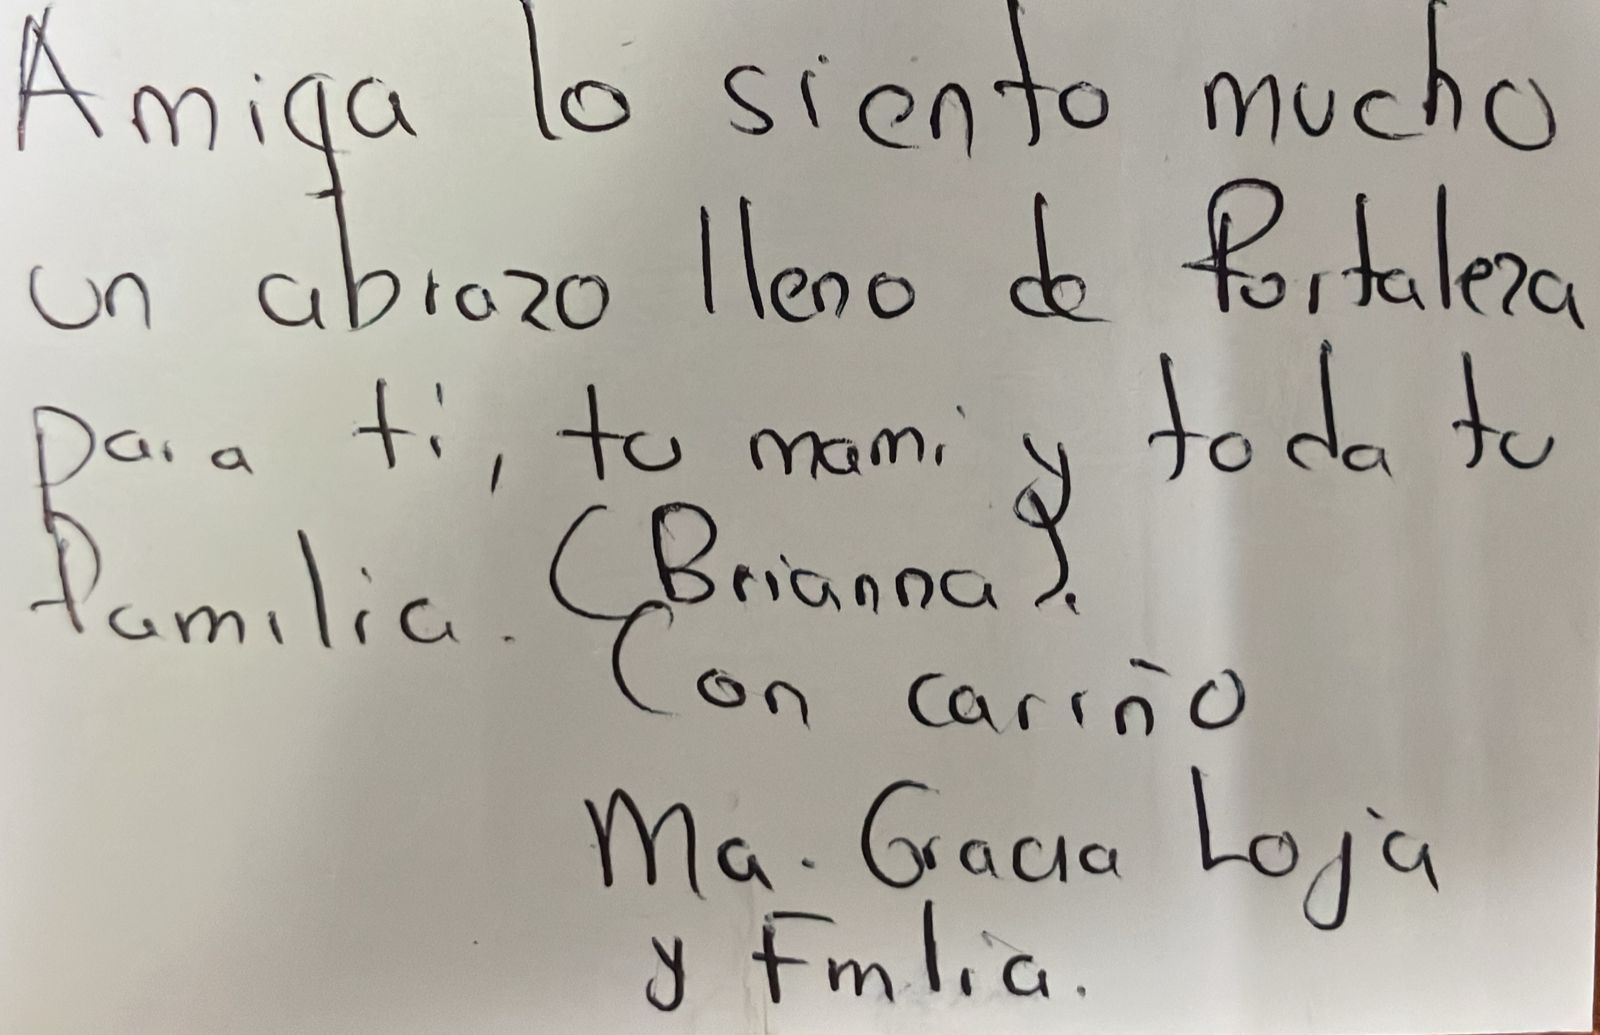 Amiga lo siento mucho
un abrazo lleno de fortaleza
para ti, tu mami y toda tu
familia. (Brianna).
Con cariño
Ma. Gracia Loja
y Fmlia.